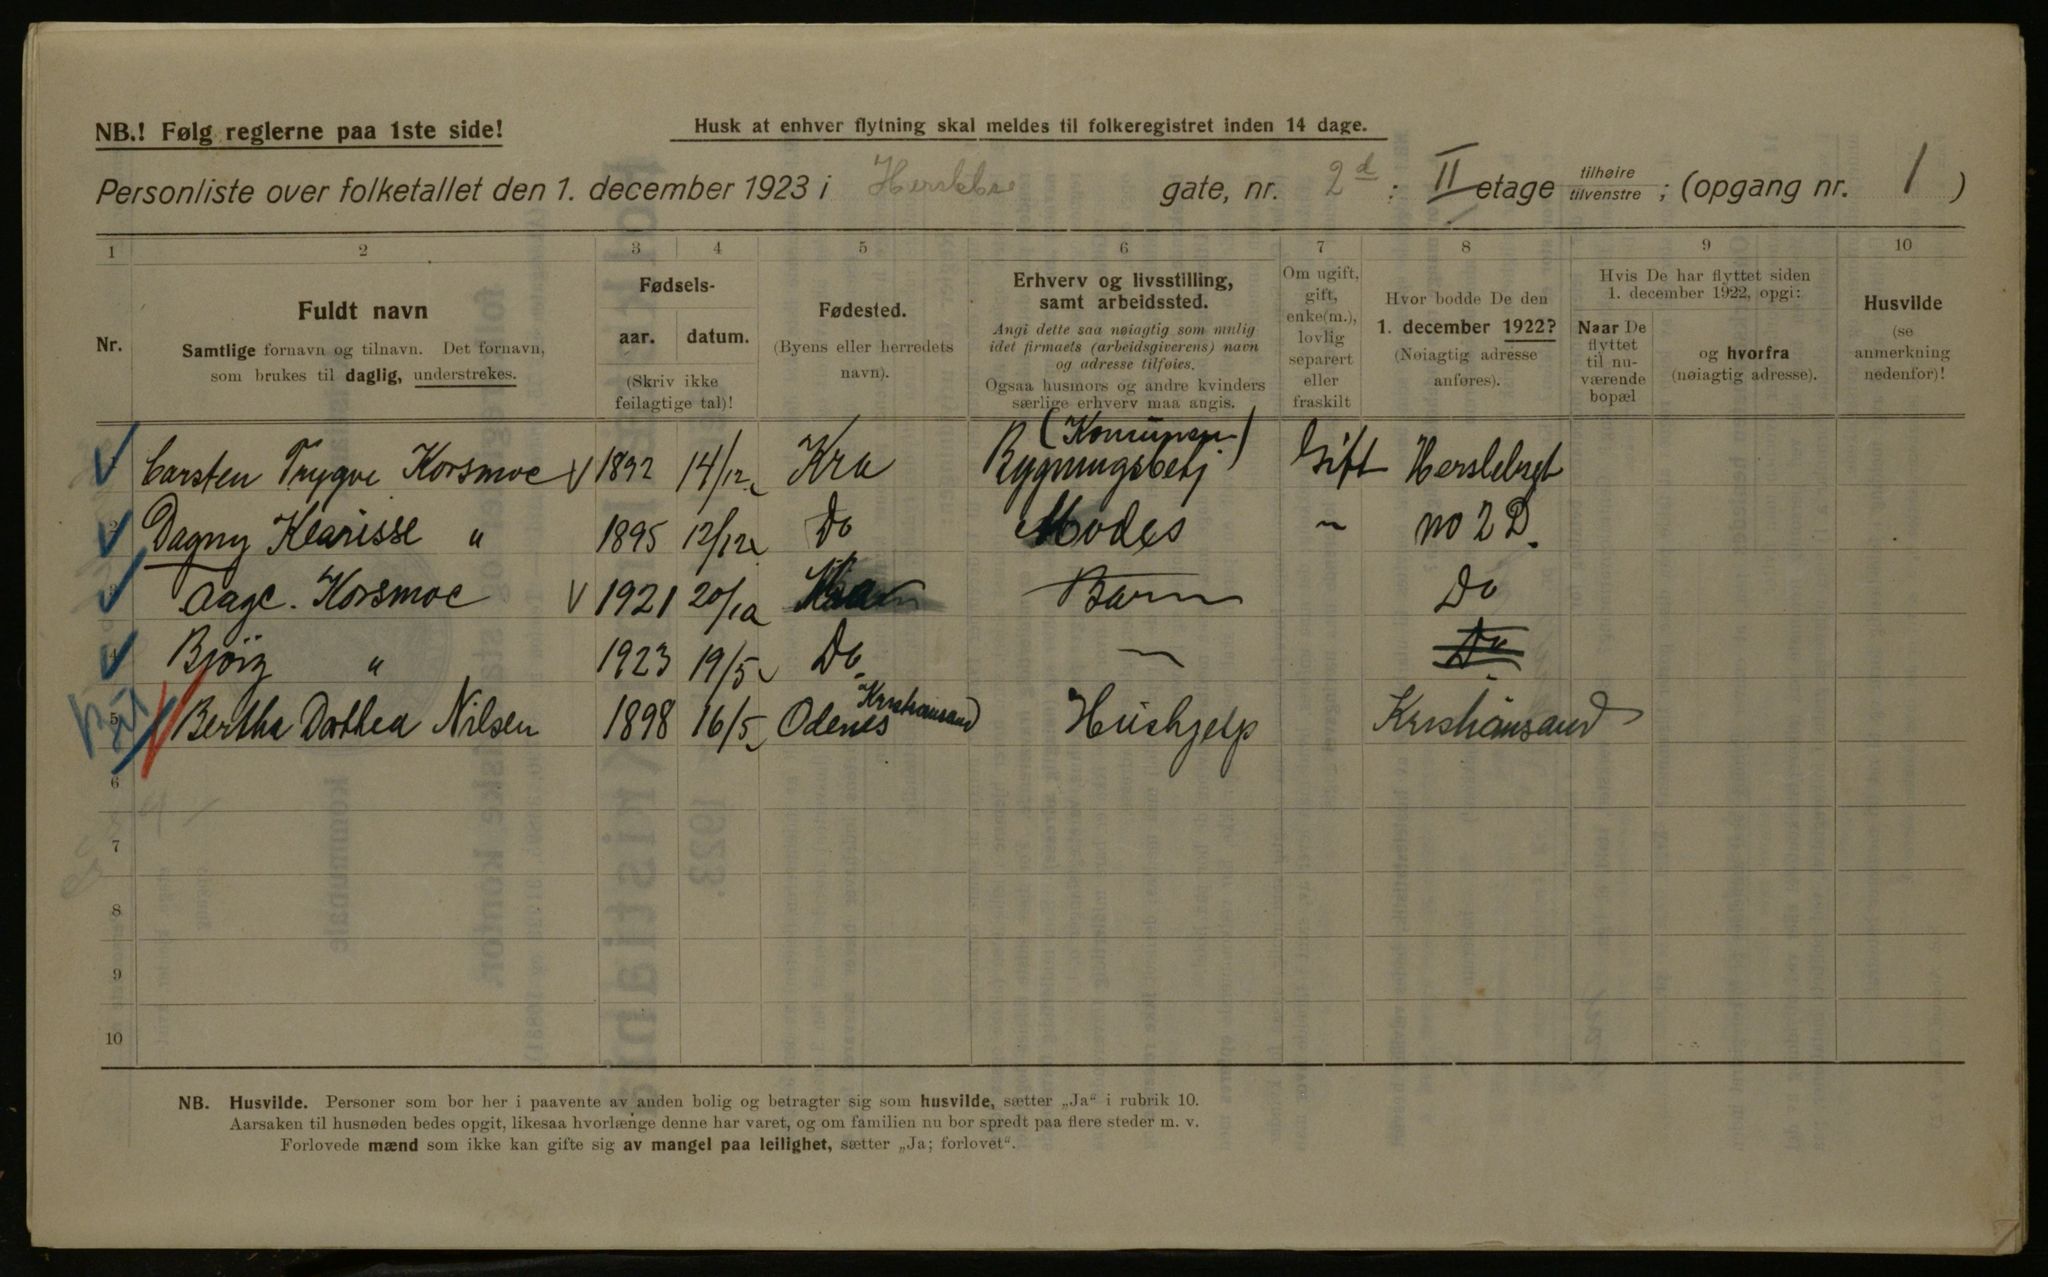 NB.! Følg reglerne paa 1ste side!
Husk at enhver flytning skal meldes til folkeregistret inden 14 dage.
Personliste over folketallet den 1. december 1923 i Herslebs gate, nr. 2d : II etage tilhøire tilvenstre ; (opgang nr. 1 )
1 2 3 4 5 6 7 8 9 10
Nr.
Fuldt navn
Samtlige fornavn og tilnavn. Det fornavn,
som brukes til daglig, understrekes.
Fødsels-
aar. datum.
(Skriv ikke
feilagtige tal)!
Fødested.
(Byens eller herredets
navn).
Erhverv og livsstilling,
samt arbeidssted.
Angi dette saa nøiagtig som mulig
idet firmaets (arbeidsgiverens) navn
og adresse tilføies.
Ogsaa husmors og andre kvinders
særlige erhverv maa angis.
Om ugift,
gift,
enke(m.),
lovlig
separert
eller
fraskilt
Hvor bodde De den
1. december 1922?
(Nøiagtig adresse
anføres).
Hvis De har flyttet siden
1. december 1922, opgi:
Naar De
flyttet
til nu-
værende
bopæl
og hvorfra
(nøiagtig adresse).
Husvilde
(se
anmerkning
nedenfor)!
Carsten Trygve Korsmoe 1892 14/12 Kra Bygningsbetj Gift Herslebsgt
2 Dagny Klarisse " 1895 12/12 Do Modes " no 2 D.
3 Aage. Korsmoe 1921 20/10 Kra Barn Do
4 Bjørg " 1923 19/5 Do " Do
5 Bertha Dorthea Nilsen 1898 16/5 Odenes Kristiansand Hushjelp Kristiansand
6
7
8
9
10
NB. Husvilde. Personer som bor her i paavente av anden bolig og betragter sig som husvilde, sætter „Ja" i rubrik 10.
Aarsaken til husnøden bedes opgit, likesaa hvorlænge denne har varet, og om familien nu bor spredt paa flere steder m. v.
Forlovede mænd som ikke kan gifte sig av mangel paa leilighet, sætter „Ja; forlovet".